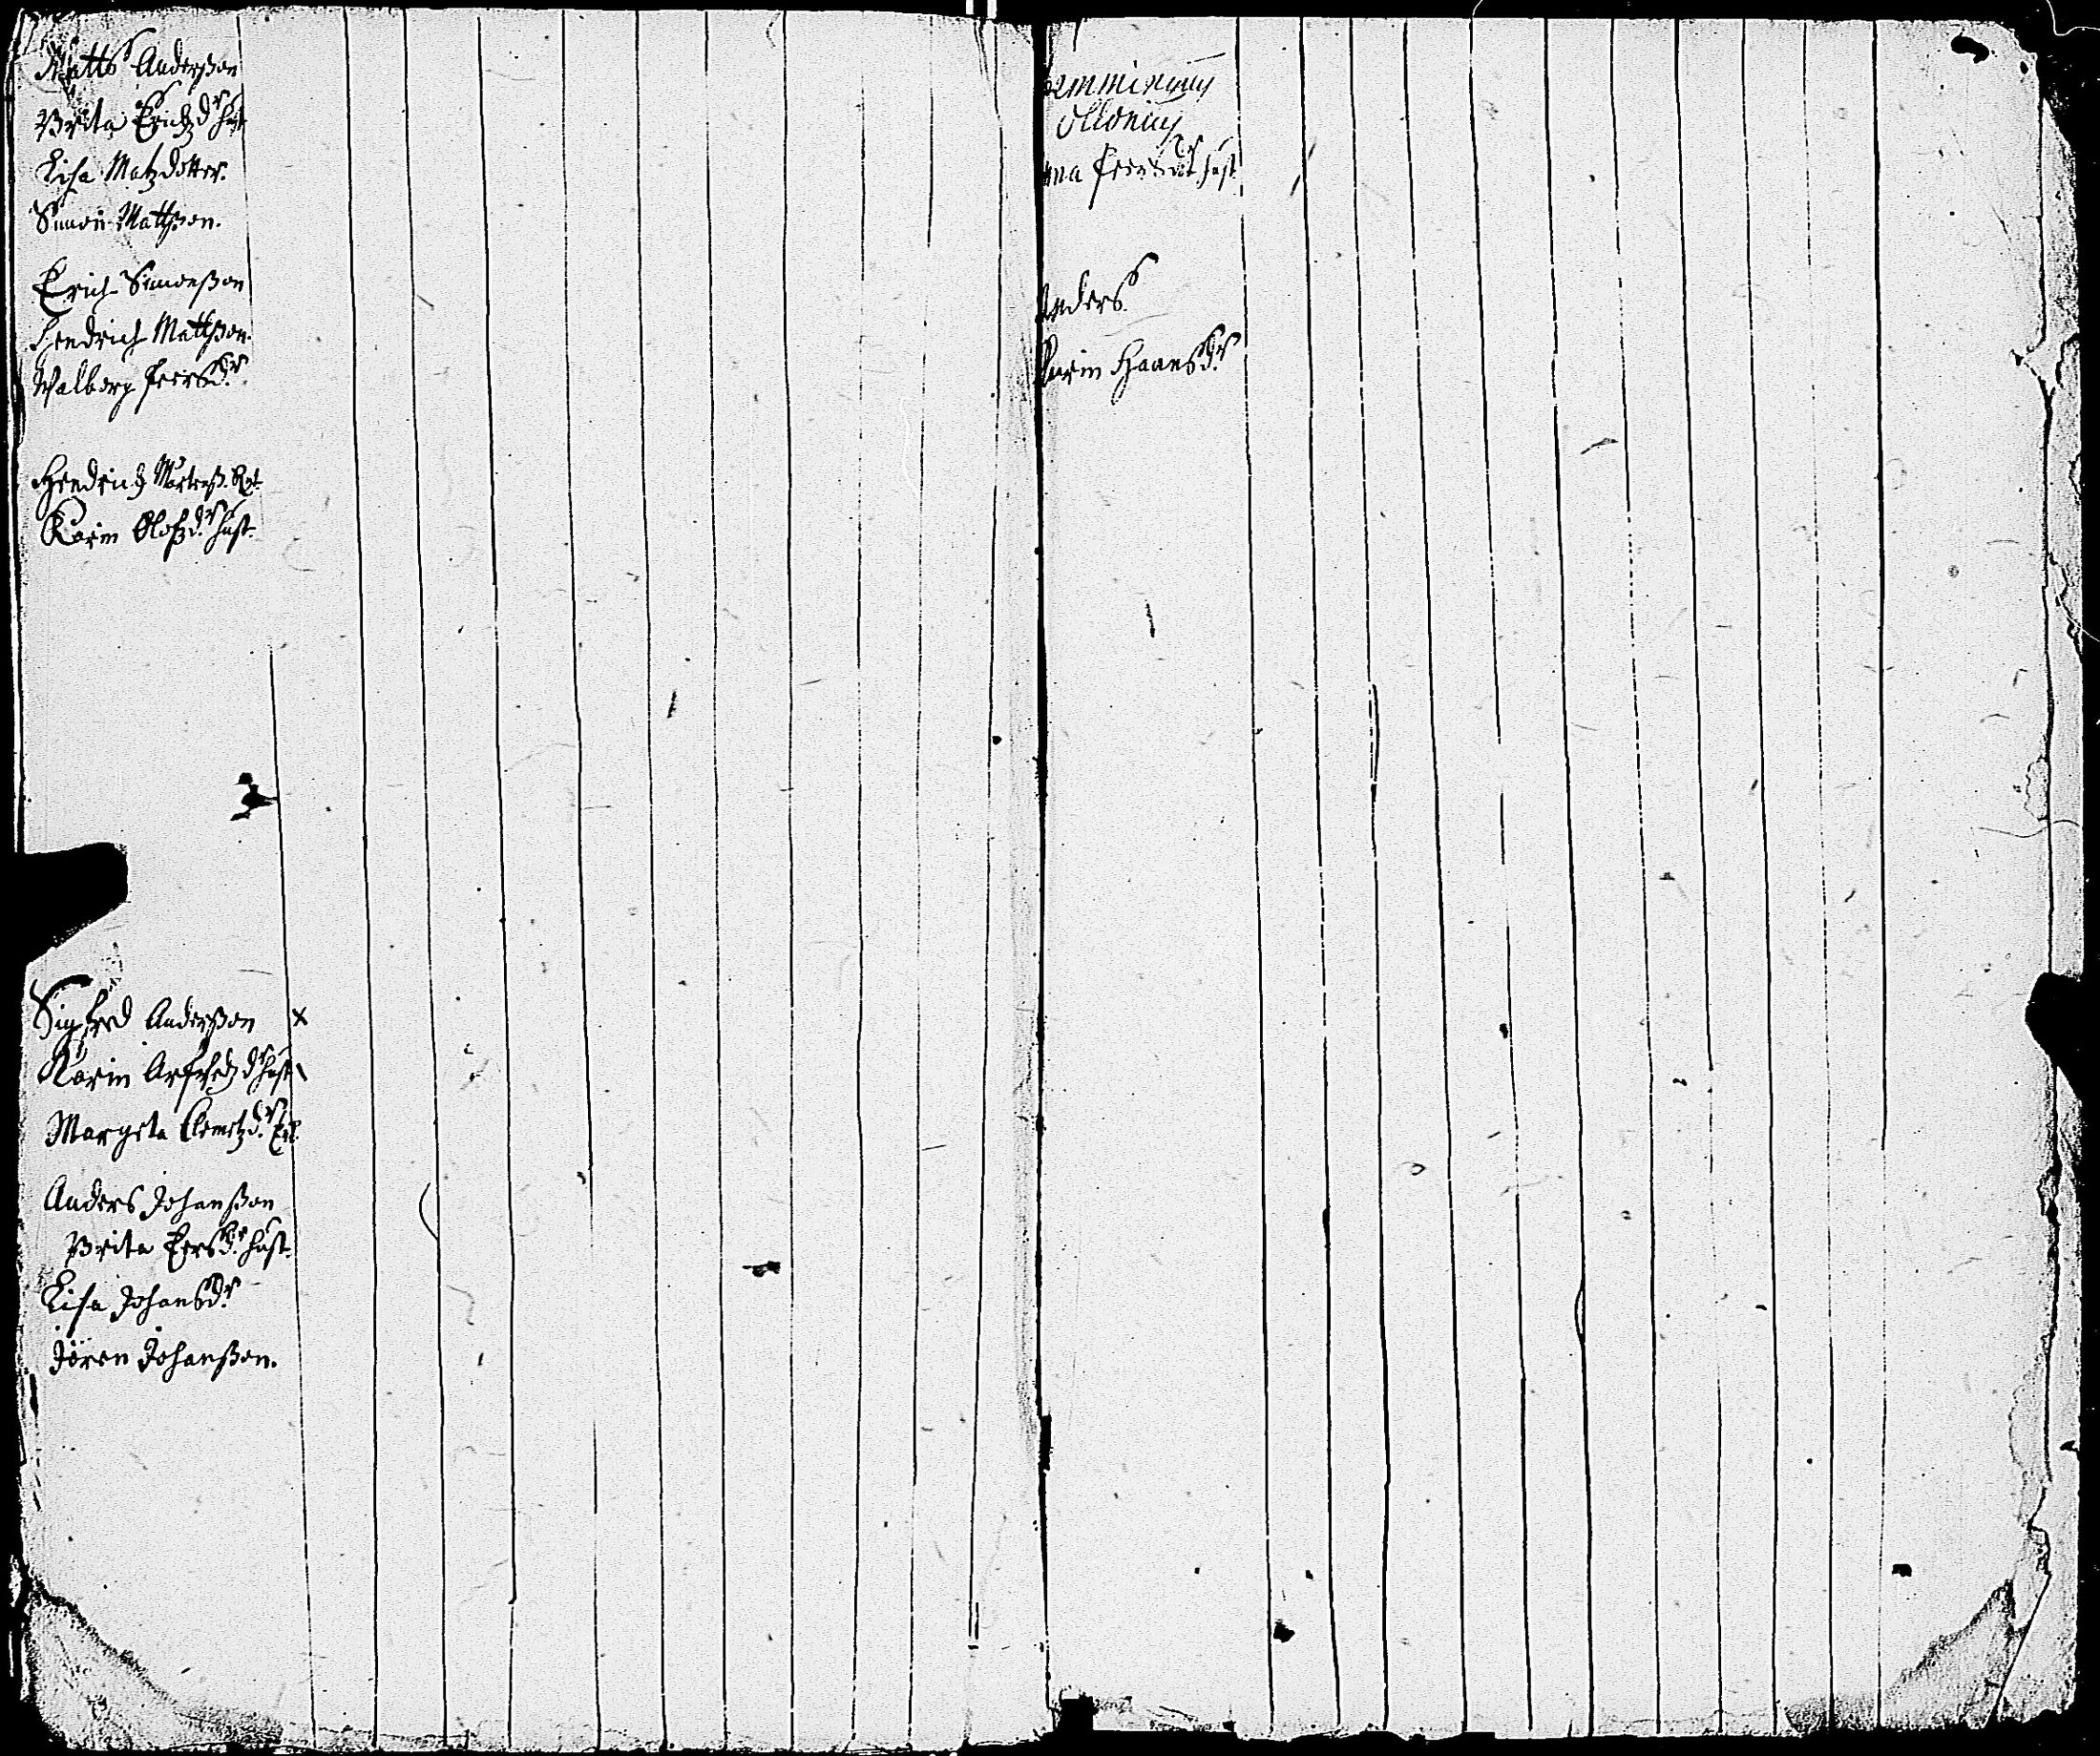 Matts Anderßon
Brita Erichzdr hust
Lisa Matzdotter.
Simon Mattßon.
Erich Simonßon
Hendrich Mattßon.
Walborg Persdr
Hendrich Mårtenß. Ryt.
Karin Olofzdr hust.
Sigfred Anderßon x
Karin Arfvedzdr hust
Margeta Clemetzdr
Anders Johanßon
Brita Persdr hust.
Lisa Johansdr
Jören Johanßon.
hust.
Anders
Karin Hansdr